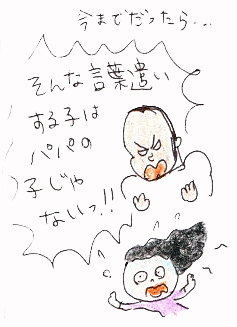 今までだったら...
そんな言葉遣い
する子は
パパの
子じゃ
ないっ!!